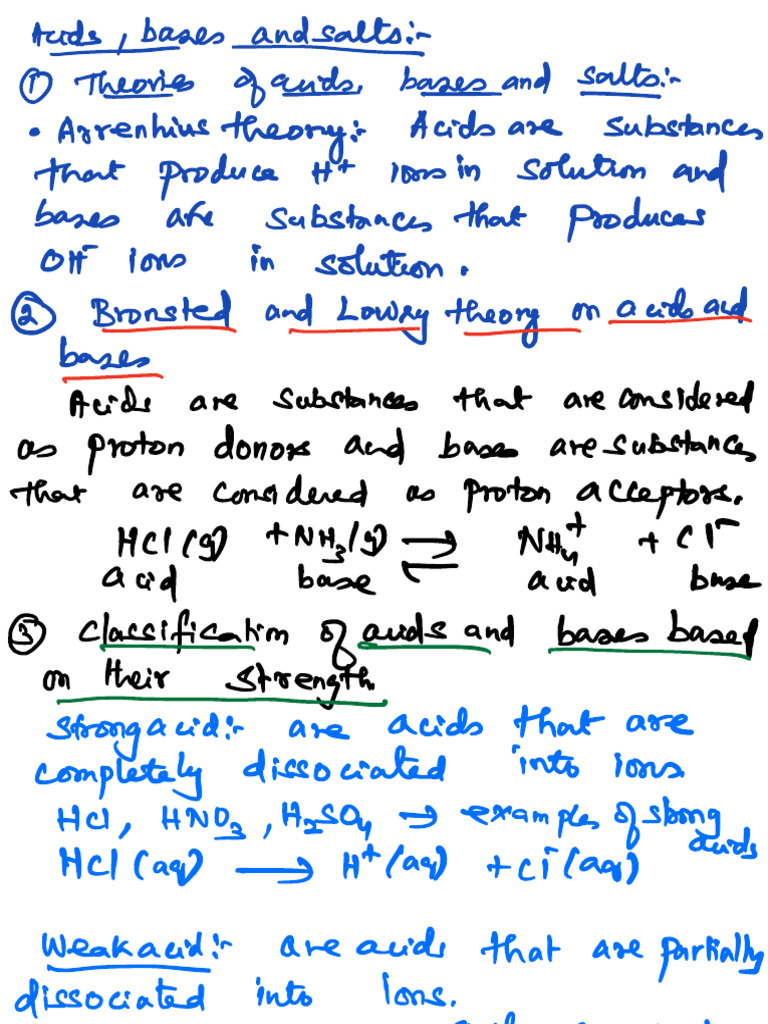 Acids, bases and salts:-
① Theories of acids, bases and salts:-
• Arrenhius theory:- Acids are substances
that produce H⁺ ions in solution and
bases are substances that produces
OH⁻ ions in solution.
② Bronsted and Lowry theory on acids and
bases
Acids are substances that are considered
as proton donors and bases are substances
that are considered as proton acceptors.
HCl(g) + NH₃(g) ⇌ NH₄⁺ + Cl⁻
acid base acid base
③ Classification of acids and bases based
on their strength.
Strong acid:- are acids that are
completely dissociated into ions.
HCl, HNO₃, H₂SO₄ → examples of strong
acids
HCl(aq) → H⁺(aq) + Cl⁻(aq)
Weak acid:- are acids that are partially
dissociated into ions.